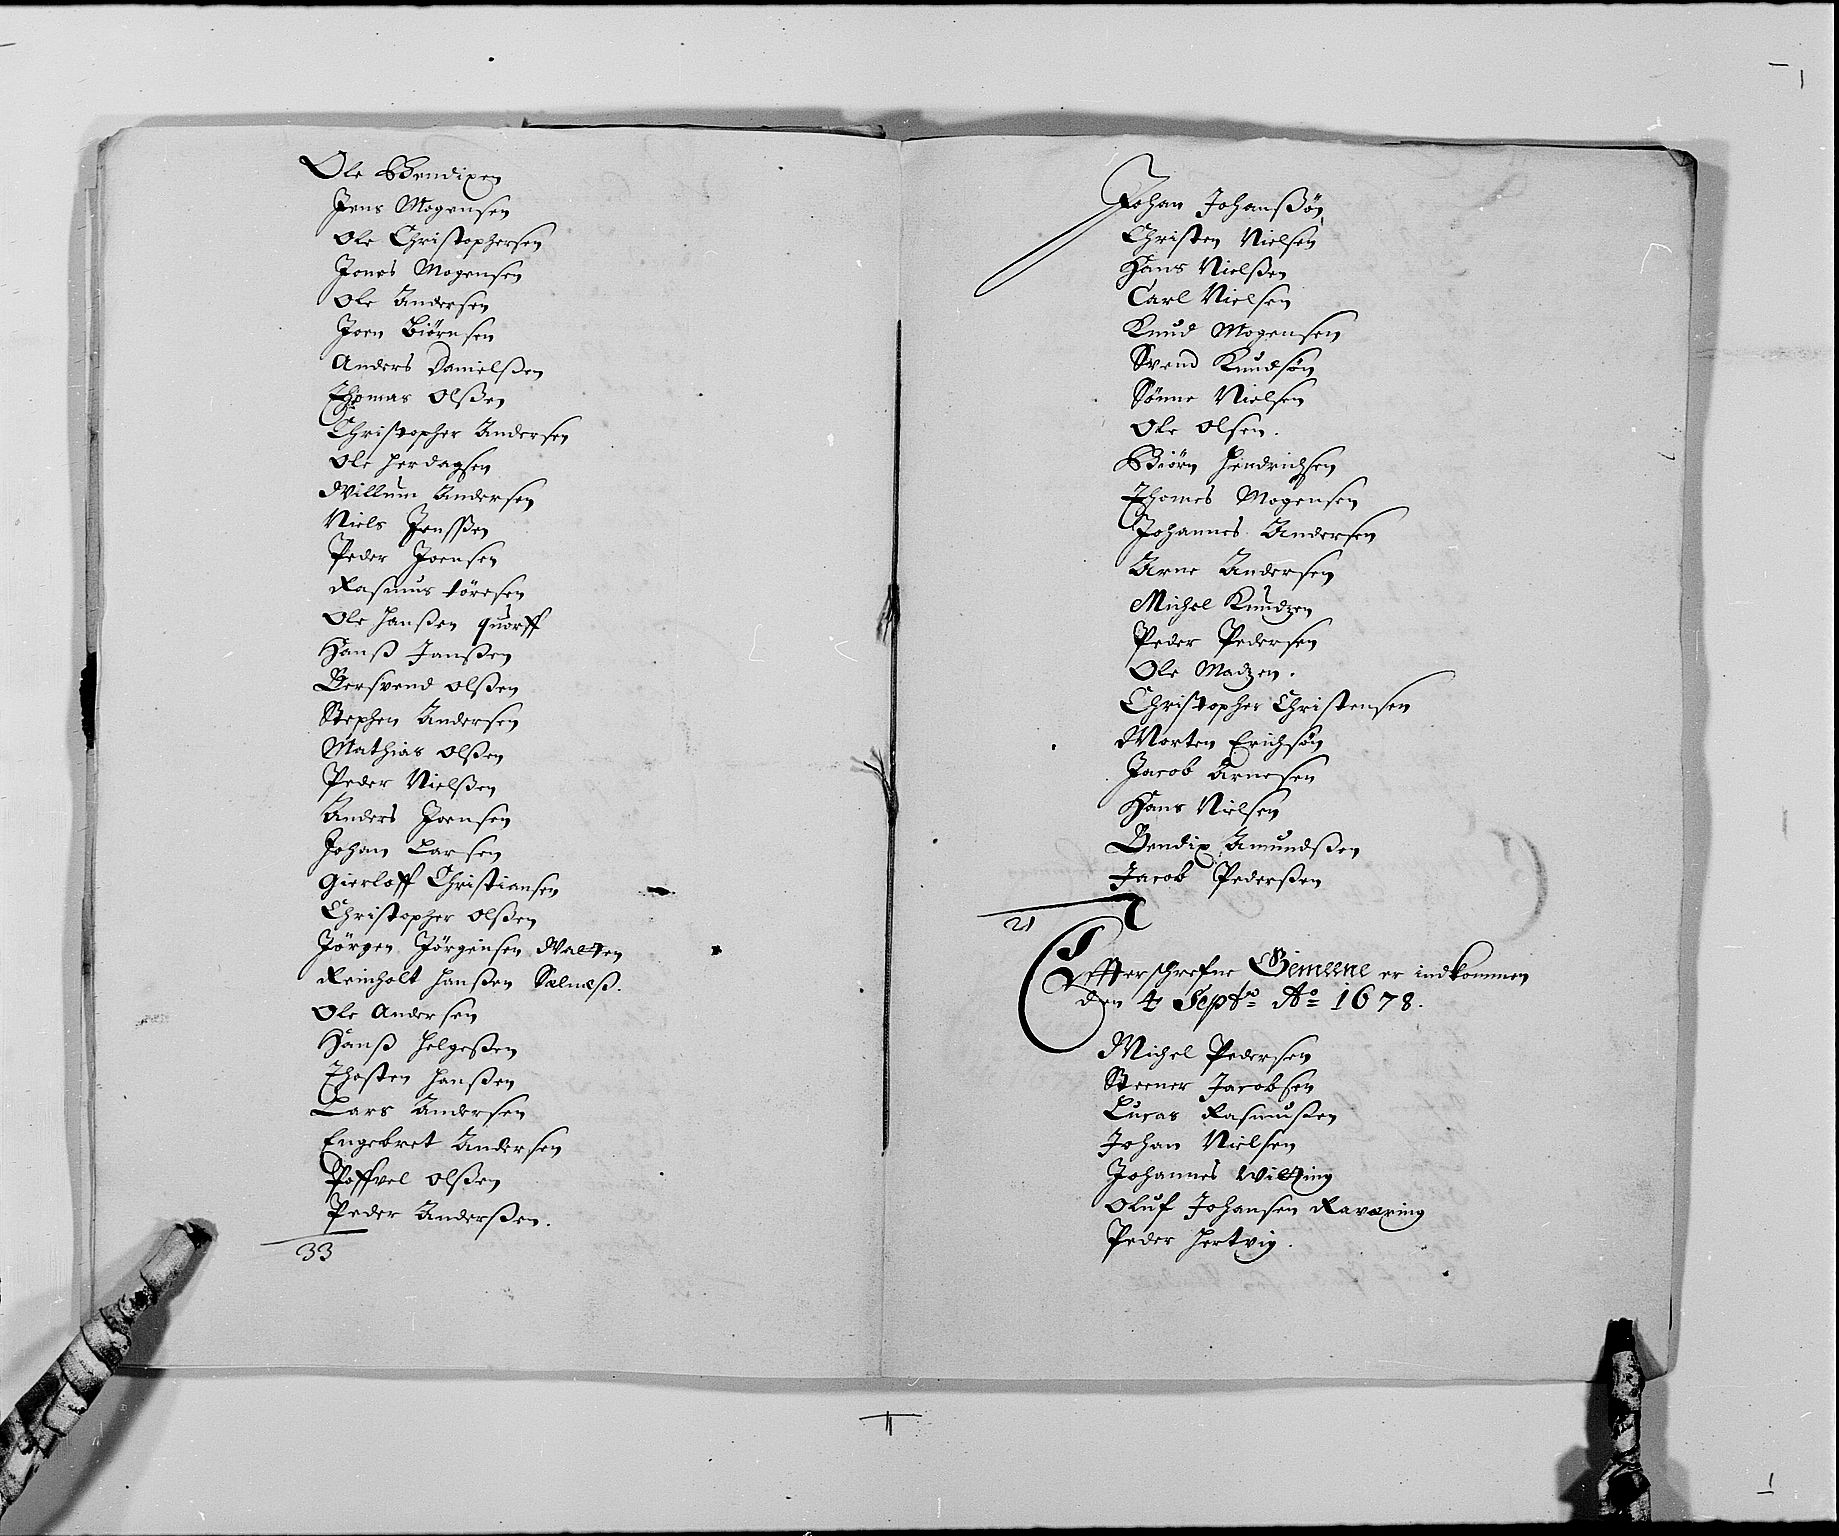 Ole Bendixen
Jens Mogensen
Ole Christophersen
Jones Mogensen
Ole Andersen
Joen Biörnsen
Anders Danielßen
Thomas Olßen
Christopher Andersen
Ole Herdagsen
Willum Andersen
Niels Jenßen
Peder Joensen
Rasmus Töresen
Ole Hanßen quorff
Hanß Janßen
Bersvend Olßen
Stephen Andersen
Mathias Olßen
Peder Nielßen
Anders Joensen
Johan Larsen
Gierloff Christiansen
Christopher Olßen
Jörgen Jörgensen Walten
Reinholt Hanßen Sælnæß.
Ole Andersen
Hanß Helgeßen
Thosten Hanßen
Lars Andersen
Engebret Andersen
Poffvel Olßen
Peder Anderßen.
33
Johan Johanßøn
Christen Nielsen
Hans Nielßen
Carl Nielsen
Knud Mogensen
Svend Knudsøn
Sönne Nielsen
Ole Olsen.
Biörn Hendrichsen
Thomes Mogensen
Johannes Andersen
Arne Andersen
Michel Knudzen
Peder Pedersen
Ole Madzen.
Christopher Christensen
Morten Erichsøn
Jacob Arnesen
Hans Nielsen
Bendix Amundßen
Jacob Pederßen
21
Effterschrefne Gemeene er indkommen
den 4 Septr Ao 1678.
Michel Pedersen
Steener Jacobsen
Lucas Rasmußen
Johan Nielsen
Johannes Wilting
Oluf Johansen Raværing
Peder Hertvig.